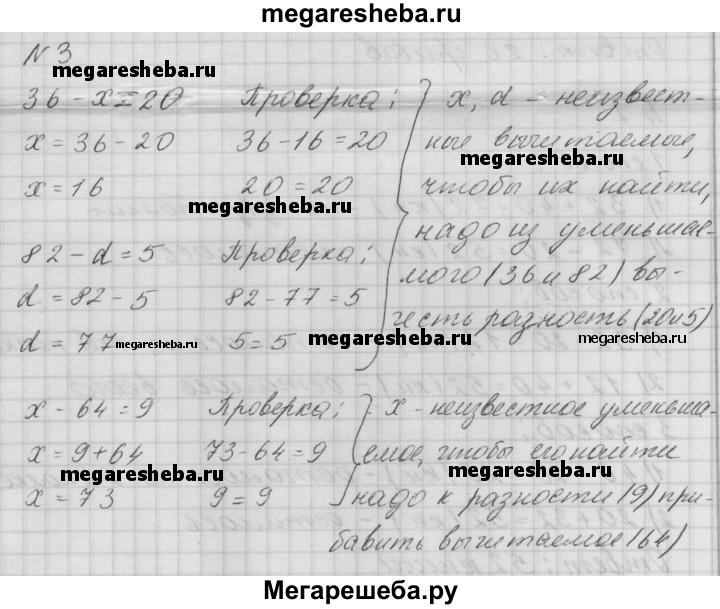 megaresheba.ru
N 3
megaresheba.ru
36 - x = 20 Проверка:
x = 36 - 20 36 - 16 = 20
x = 16 20 = 20
x, d - неизвест-
ные вычитаемые,
megaresheba.ru
чтобы их найти,
megaresheba.ru
надо из уменьшае-
мого (36 и 82) вы-
честь разность (20 и 5)
82 - d = 5 Проверка:
d = 82 - 5 82 - 77 = 5
d = 77 5 = 5
megaresheba.ru
megaresheba.ru
megaresheba.ru
x - 64 = 9 Проверка:
x = 9 + 64 73 - 64 = 9
x = 73 9 = 9
x - неизвестное уменьша-
емое, чтобы его найти
надо к разности (9) при-
бавить вычитаемое (64)
megaresheba.ru
megaresheba.ru
Мегарешеба.ру